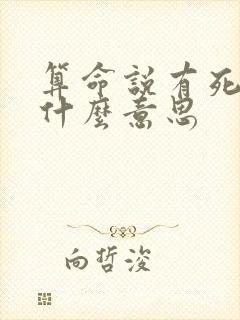 算命説有死
什麼意思
向哲浚